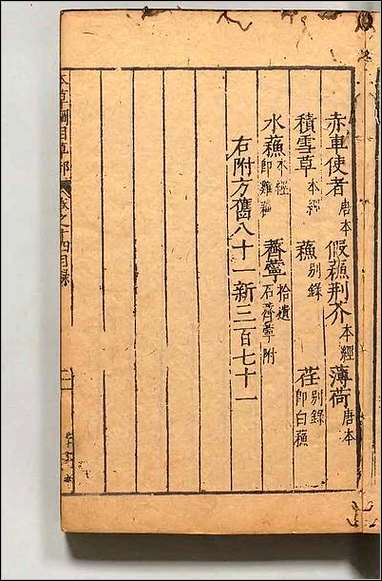 赤車使者唐本 假蘇荆芥本經 薄荷唐本
積雪草本經 蘇别錄 荏别錄即白蘇
水蘇本經即雞蘇 薺薴拾遺石薺薴附
右附方舊八十一新三百七十一
本草綱目草部 卷之十四目錄
二